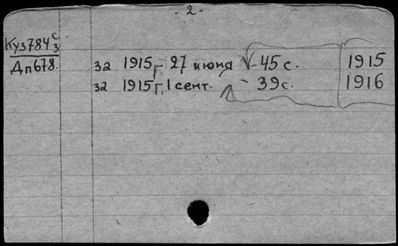 - 2 -
Куз784 с/3
Дп678.
за 1915г. 27 июня - 45 с. 1915
за 1915г. 1 сент. - 39 с. 1916